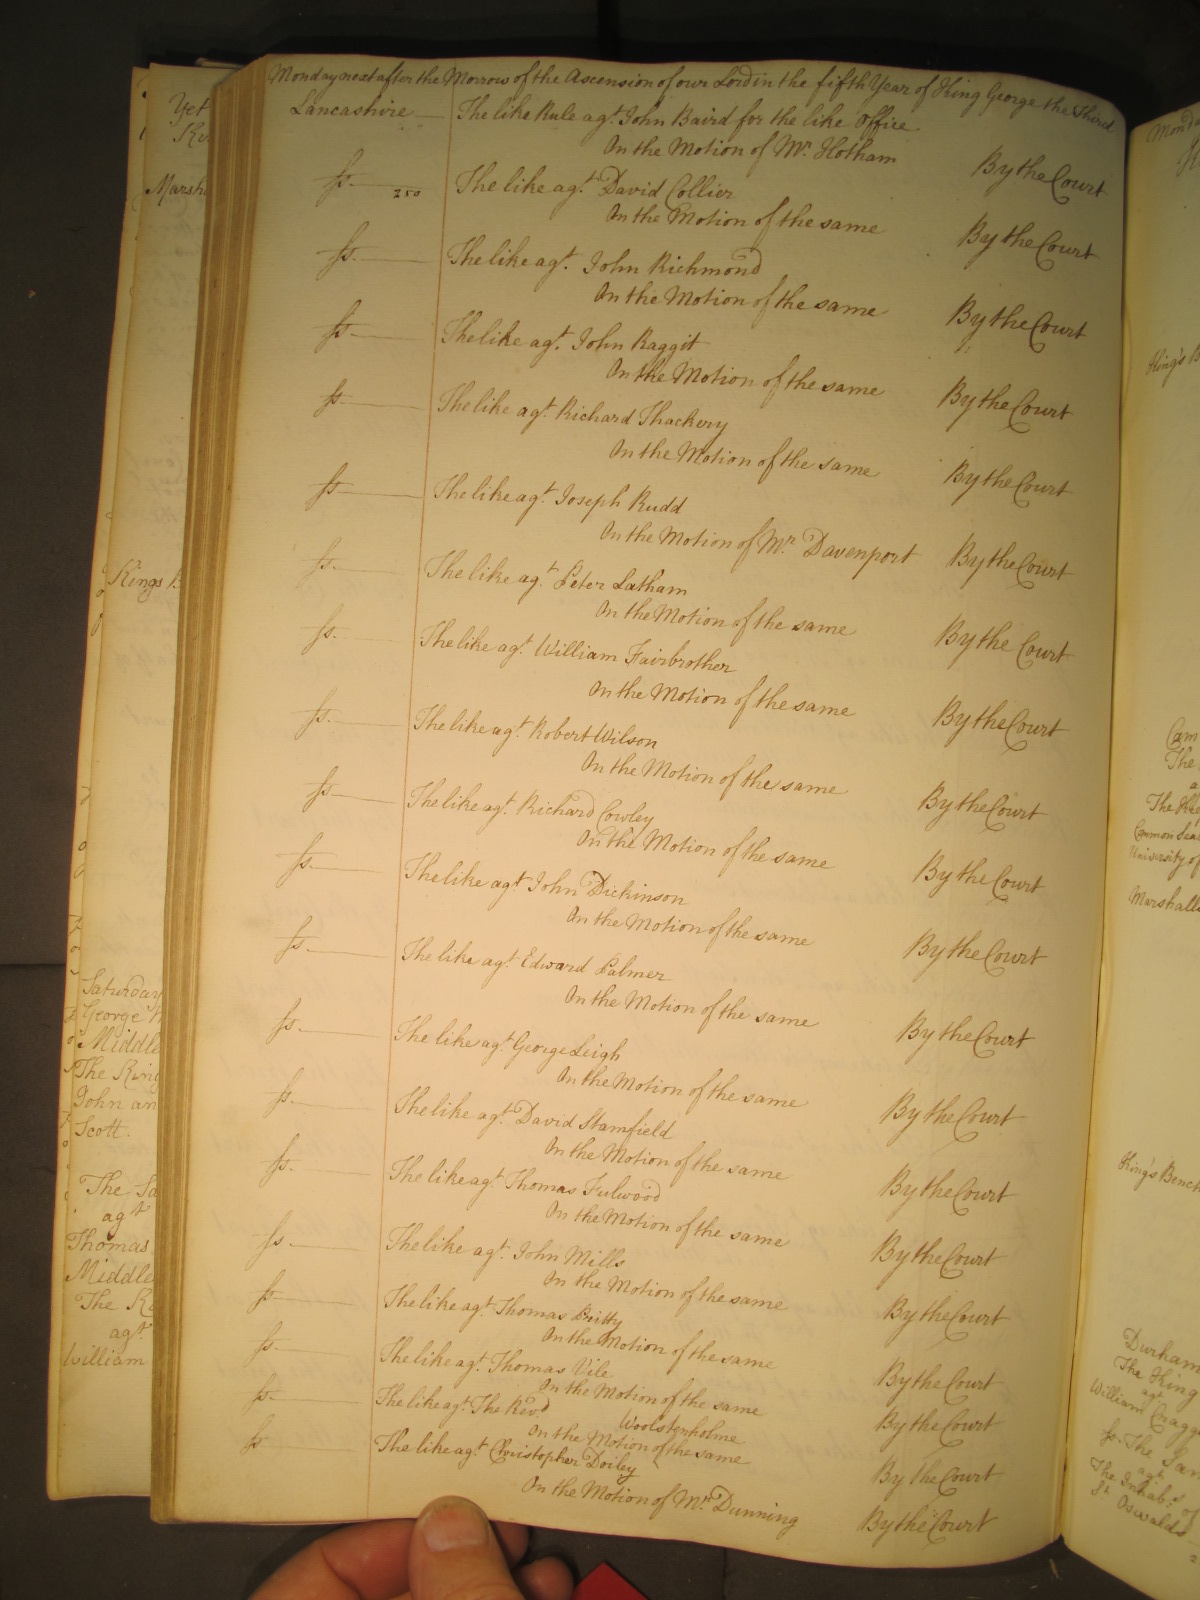 Monday next after the Morrow of the Ascension of our Lord in the fifth Year of King George the Third
Lancashire The like Rule agt. John Baird for the like Office
On the Motion of Mr. Hotham By the Court
ss. 250 The like agt. David Collier
On the Motion of the same By the Court
ss. The like agt. John Richmond
On the Motion of the same By the Court
ss. The like agt. John Raggit
On the Motion of the same By the Court
ss. The like agt. Richard Thackery
On the Motion of the same By the Court
ss. The like agt. Joseph Rudd
On the Motion of Mr. Davenport By the Court
ss. The like agt. Peter Latham
On the Motion of the same By the Court
ss. The like agt. William Fairbrother
On the Motion of the same By the Court
ss. The like agt. Robert Wilson
On the Motion of the same By the Court
ss. The like agt. Richard Cowley
On the Motion of the same By the Court
ss. The like agt. John Dickinson
On the Motion of the same By the Court
ss. The like agt. Edward Palmer
On the Motion of the same By the Court
ss. The like agt. George Leigh
On the Motion of the same By the Court
ss. The like agt. David Stamfield
On the Motion of the same By the Court
ss. The like agt. Thomas Fulwood
On the Motion of the same By the Court
ss. The like agt. John Mills
On the Motion of the same By the Court
ss. The like agt. Thomas
On the Motion of the same By the Court
ss. The like agt. Thomas Vile
On the Motion of the same By the Court
ss. The like agt. The Revd. Woolstenholme
On the Motion of the same By the Court
ss The like agt. Christopher Doiley
On the Motion of Mr. Dunning By the Court
Yet
Marsh
Kings B
Saturday
George
Middle
The King
John an
Scott.
The Sa
agt
Thomas
Middle
The
agt
William
King's B
Cam
The
Common Seal
University of
Marshalls
King's Bench
Durham
The King
agt.
William Cragg
ss. The Sam
agt.
The Inhabs. of
St. Oswalds